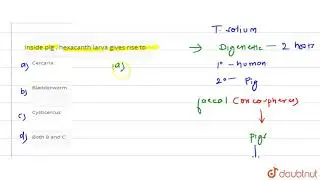 Inside pig, hexacanth larva gives rise to
a) Cercaria
b) Bladderworm
c) Cysticercus
d) Both B and C
(a)
T. solium
→ Digenetic - 2 hosts
1° - human
2° - Pig
faecal (Oncospheres)
↓
pigs
doubtnut